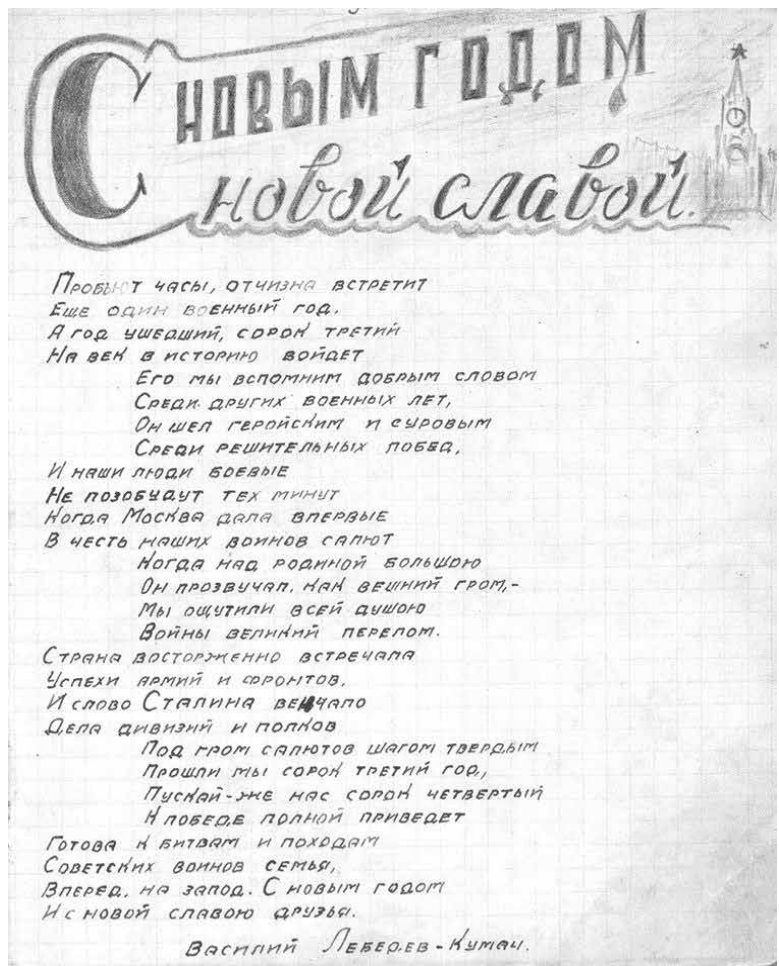 С НОВЫМ ГОДОМ
С новой славой.
Пробьют часы, отчизна встретит
Еще один военный год.
А год ушедший, сорок третий
На век в историю войдет
Его мы вспомним добрым словом
Среди других военных лет,
Он шел геройским и суровым
Среди решительных побед.
И наши люди боевые
Не позобудут тех минут
Когда Москва дала впервые
В честь наших воинов салют
Когда над родиной большою
Он прозвучал, как вешний гром,-
Мы ощутили всей душою
Войны великий перелом.
Страна восторженно встречала
Успехи армий и фронтов,
И слово Сталина венчало
Дела дивизий и полков
Под гром салютов шагом твердым
Прошли мы сорок третий год,
Пускай-же нас сорок четвертый
К победе полной приведет
Готова к битвам и походам
Советских воинов семья,
Вперед, на запод. С новым годом
И с новой славою друзья.
Василий Леберев-Кумач.